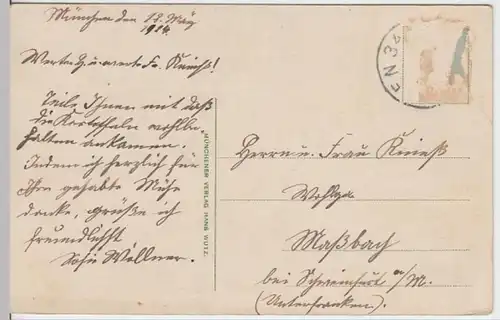 München den 12. März
1914
Werter H. u. werte Fr. Knieß!
Teile Ihnen mit daß
die Kartoffeln wohlbe-
halten ankamen.
Indem ich herzlich für
Ihre gehabte Mühe
danke, grüße ich
freundlichst
Sofie Wöllner.
MÜNCHENER VERLAG HANS WUTZ.
EN 32
Herrn u. Frau Knieß
Wohlgb
Maßbach
bei Schweinfurt a/M.
(Unterfranken.)